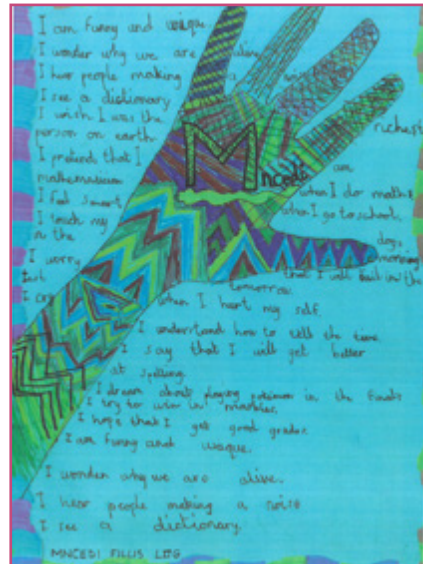 I am funny and unique
I wonder why we are alive
I hear people making a
I see a dictionary
I wish I was the richest
person on earth
I pretend that I am
mathematician when I do maths
I feel smart when I go to school.
I touch my dogs
in the morning
I worry that I will fail in the
test tomorrow.
I cry when I hurt my self.
I understand how to tell the time
I say that I will get better
at spelling.
I dream about playing pokimon in the finals
I try to win in
I hope that I get good grades
I am funny and
I wonder why we are alive.
I hear people making a noise
I see a dictionary.
Mncedi
MNCEDI FILLIS